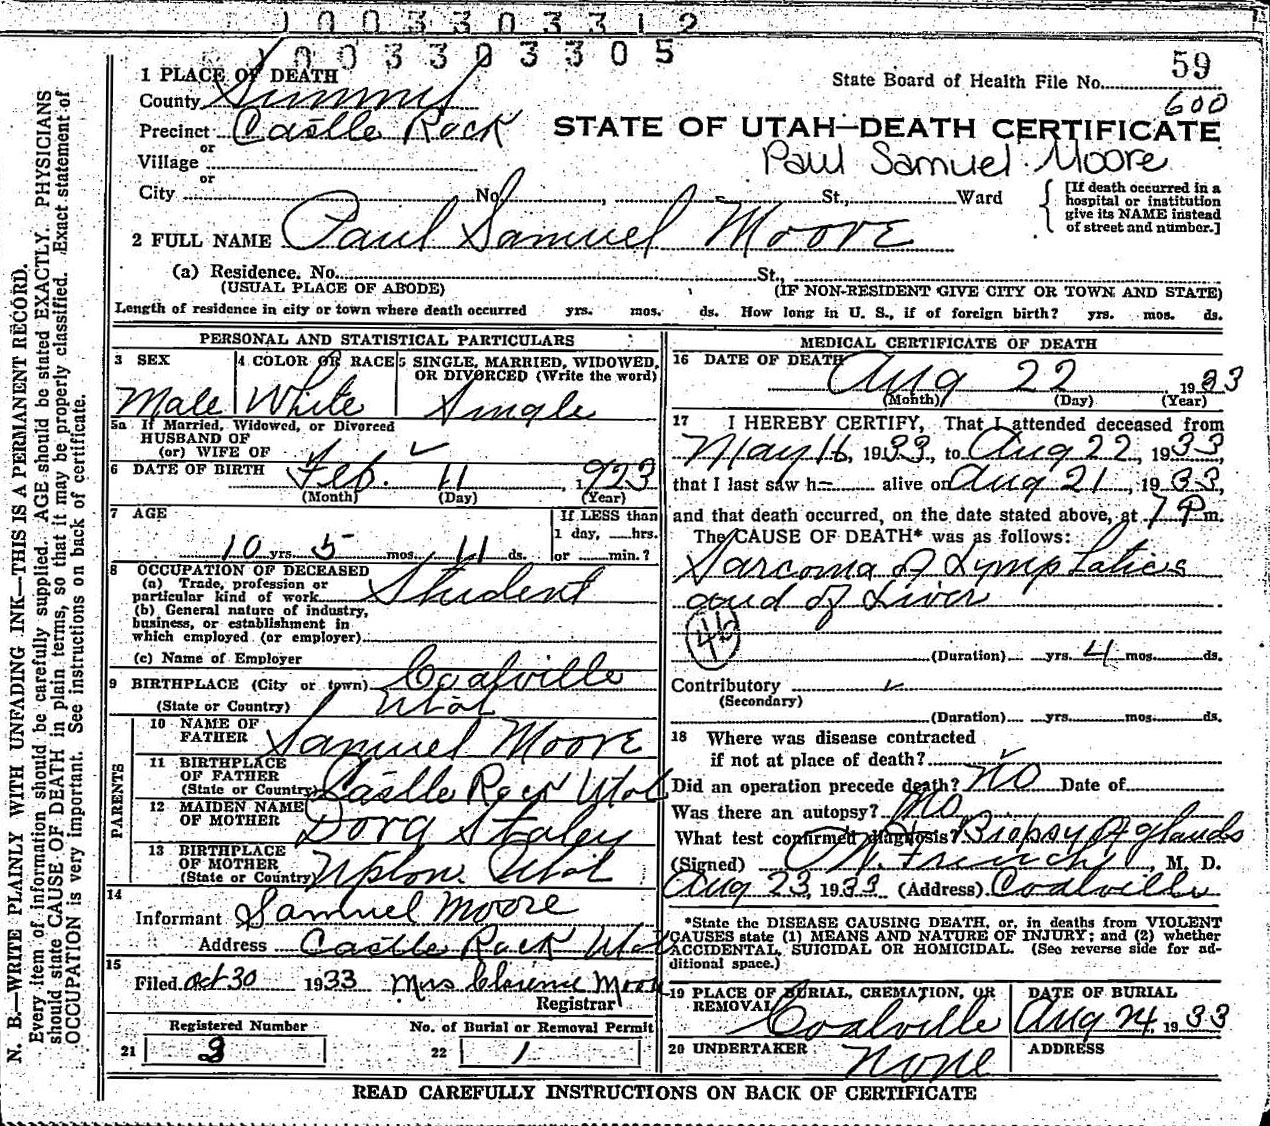 1003303312
1003303305
59
1 PLACE OF DEATH
State Board of Health File No.
County Summit
600
Precinct Castle Rock
STATE OF UTAH—DEATH CERTIFICATE
or
Village
Paul Samuel Moore
or
City No. , St., Ward
[If death occurred in a
hospital or institution
give its NAME instead
of street and number.]
2 FULL NAME Paul Samuel Moore
(a) Residence. No. St.,
(USUAL PLACE OF ABODE) (IF NON-RESIDENT GIVE CITY OR TOWN AND STATE)
Length of residence in city or town where death occurred yrs. mos. ds. How long in U. S., if of foreign birth? yrs. mos. ds.
PERSONAL AND STATISTICAL PARTICULARS
3 SEX
Male
4 COLOR OR RACE
White
5 SINGLE, MARRIED, WIDOWED,
OR DIVORCED (Write the word)
Single
5a If Married, Widowed, or Divorced
HUSBAND OF
(or) WIFE OF
6 DATE OF BIRTH Feb. 11, 1923
(Month) (Day) (Year)
7 AGE
10 yrs. 5 mos. 11 ds.
If LESS than
1 day, hrs.
or min.?
8 OCCUPATION OF DECEASED
(a) Trade, profession or
particular kind of work Student
(b) General nature of industry,
business, or establishment in
which employed (or employer)
(c) Name of Employer
9 BIRTHPLACE (City or town) Coalville
(State or Country) Utah
PARENTS
10 NAME OF
FATHER Samuel Moore
11 BIRTHPLACE
OF FATHER
(State or Country) Castle Rock Utah
12 MAIDEN NAME
OF MOTHER Dora Staley
13 BIRTHPLACE
OF MOTHER
(State or Country) Upton Utah
14
Informant Samuel Moore
Address Castle Rock Utah
15
Filed Oct 30 1933 Mrs Clarence Moore
Registrar
Registered Number
21 3
No. of Burial or Removal Permit
22 1
MEDICAL CERTIFICATE OF DEATH
16 DATE OF DEATH Aug 22, 1933
(Month) (Day) (Year)
17 I HEREBY CERTIFY, That I attended deceased from
May 16, 1933, to Aug 22, 1933,
that I last saw h alive on Aug 21, 1933,
and that death occurred, on the date stated above, at 7 P m.
The CAUSE OF DEATH* was as follows:
Sarcoma of Lymphatics
and of Liver
46
(Duration) yrs. 4 mos. ds.
Contributory
(Secondary)
(Duration) yrs. mos. ds.
18 Where was disease contracted
if not at place of death?
Did an operation precede death? No Date of
Was there an autopsy? No
What test confirmed diagnosis? Biopsy of glands
(Signed) French, M. D.
Aug 23, 1933 (Address) Coalville
*State the DISEASE CAUSING DEATH, or, in deaths from VIOLENT
CAUSES state (1) MEANS AND NATURE OF INJURY; and (2) whether
ACCIDENTAL, SUICIDAL OR HOMICIDAL. (See reverse side for ad-
ditional space.)
19 PLACE OF BURIAL, CREMATION, OR
REMOVAL
Coalville
DATE OF BURIAL
Aug 24, 1933
20 UNDERTAKER
None
ADDRESS
READ CAREFULLY INSTRUCTIONS ON BACK OF CERTIFICATE
N. B.—WRITE PLAINLY WITH UNFADING INK—THIS IS A PERMANENT RECORD.
Every item of information should be carefully supplied. AGE should be stated EXACTLY. PHYSICIANS
should state CAUSE OF DEATH in plain terms, so that it may be properly classified. Exact statement of
OCCUPATION is very important. See instructions on back of certificate.